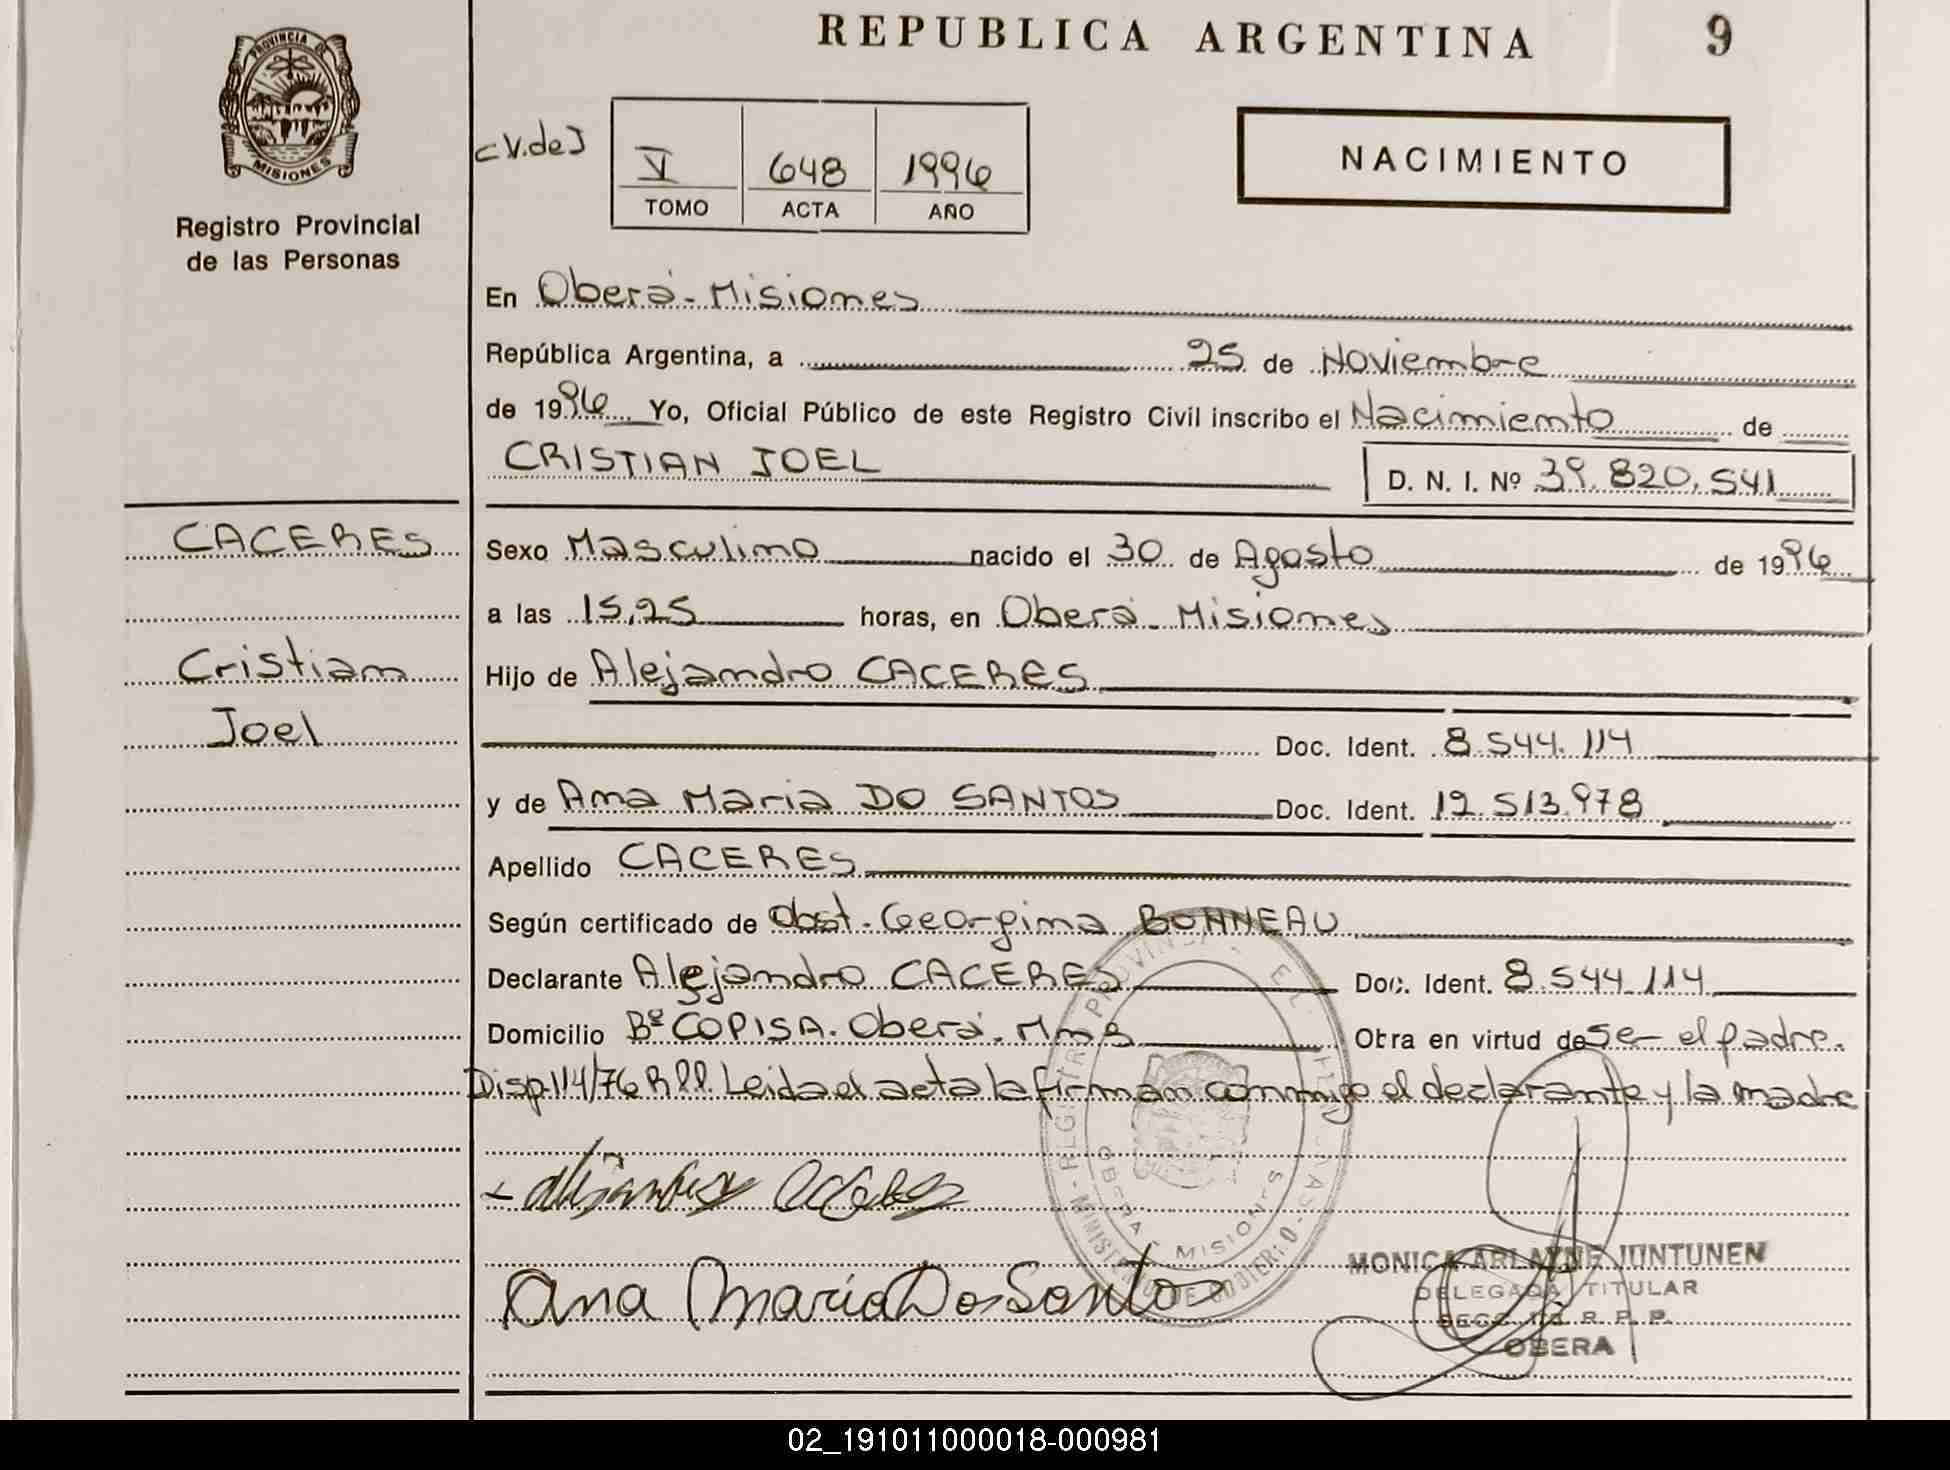 REPUBLICA ARGENTINA 9
PROVINCIA DE
MISIONES
Registro Provincial
de las Personas
V 648 1996
TOMO ACTA AÑO
NACIMIENTO
En Oberá - Misiones
República Argentina, a 25 de Noviembre
de 1996 Yo, Oficial Público de este Registro Civil inscribo el Nacimiento de
CRISTIAN JOEL D. N. I. Nº 39.820.541
CACERES
Cristian
Joel
Sexo Masculino nacido el 30 de Agosto de 1996
a las 15,25 horas, en Oberá - Misiones
Hijo de Alejandro CACERES
Doc. Ident. 8.544.114
y de Ana Maria DO SANTOS Doc. Ident. 12.513.978
Apellido CACERES
Según certificado de Obst. Georgina BONNEAU
Declarante Alejandro CACERES Doc. Ident. 8.544.114
Domicilio Bº COPISA. Oberá. Mnes Obra en virtud de ser el padre.
Disp 114/76 R.P.P. Leida el acta la firman conmigo el declarante y la madre
Ana María Do Santos
OBERA - MISIONES
MONICA ARLAYNE JUNTUNEN
DELEGADA TITULAR
R. P. P.
OBERA
02_191011000018-000981